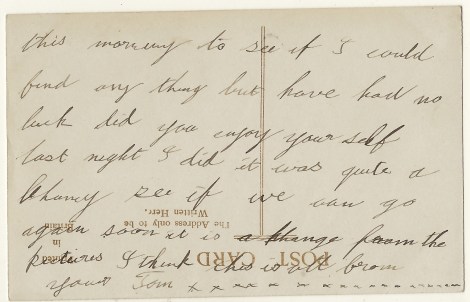 this morning to see if I could
find any thing but have had no
luck did you enjoy your self
last night I did it was quite a
Chaney see if we can go
again soon it is a change from the
pictures I think this is all from
your Tom x x x x x x x x x x x
POST CARD
The Address only to be
Written Here.
Printed
in
Britain